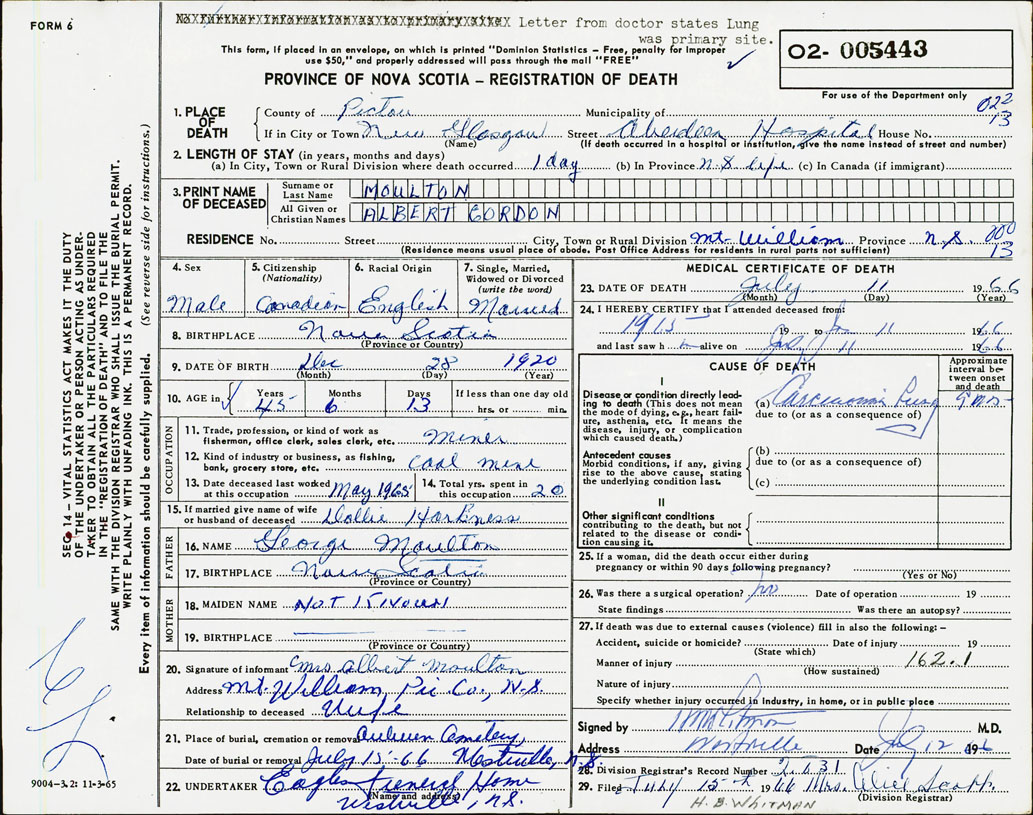 FORM 6
Letter from doctor states Lung
was primary site.
This form, if placed in an envelope, on which is printed "Dominion Statistics – Free, penalty for improper
use $50," and properly addressed will pass through the mail "FREE"
PROVINCE OF NOVA SCOTIA – REGISTRATION OF DEATH
02- 005443
For use of the Department only
022
13
1. PLACE OF DEATH
County of Pictou Municipality of
If in City or Town New Glasgow Street Aberdeen Hospital House No.
(Name) (If death occurred in a hospital or institution, give the name instead of street and number)
2. LENGTH OF STAY (in years, months and days)
(a) In City, Town or Rural Division where death occurred 1 day (b) In Province N.S. life (c) In Canada (if immigrant)
3. PRINT NAME OF DECEASED
Surname or Last Name MOULTON
All Given or Christian Names ALBERT GORDON
RESIDENCE No. Street City, Town or Rural Division Mt. William Province N.S. 000
13
(Residence means usual place of abode. Post Office Address for residents in rural parts not sufficient)
4. Sex
Male
5. Citizenship
(Nationality)
Canadian
6. Racial Origin
English
7. Single, Married,
Widowed or Divorced
(write the word)
Married
8. BIRTHPLACE Nova Scotia
(Province or Country)
9. DATE OF BIRTH Dec 28 1920
(Month) (Day) (Year)
10. AGE in Years Months Days If less than one day old
45 6 13 hrs. or min.
OCCUPATION
11. Trade, profession, or kind of work as
fisherman, office clerk, sales clerk, etc. Miner
12. Kind of industry or business, as fishing,
bank, grocery store, etc. Coal mine
13. Date deceased last worked
at this occupation May 1965
14. Total yrs. spent in
this occupation 20
15. If married give name of wife
or husband of deceased Dollie Harkness
FATHER
16. NAME George Moulton
17. BIRTHPLACE Nova Scotia
(Province or Country)
MOTHER
18. MAIDEN NAME NOT KNOWN
19. BIRTHPLACE
(Province or Country)
20. Signature of informant Mrs Albert Moulton
Address Mt. William, Pic Co., N.S.
Relationship to deceased Wife
21. Place of burial, cremation or removal Auburn Cemetery,
Date of burial or removal July 13, 66 Westville, N.S.
22. UNDERTAKER Eagles Funeral Home
(Name and address)
Westville, N.S.
MEDICAL CERTIFICATE OF DEATH
23. DATE OF DEATH July 11 1966
(Month) (Day) (Year)
24. I HEREBY CERTIFY that I attended deceased from:
19 to 11 1966
and last saw h alive on July 11 1966
CAUSE OF DEATH
Approximate
interval be-
tween onset
and death
I
Disease or condition directly lead-
ing to death (This does not mean
the mode of dying, e.g., heart fail-
ure, asthenia, etc. It means the
disease, injury, or complication
which caused death.)
(a) Carcinoma Lung 9 mos
due to (or as a consequence of)
Antecedent causes
Morbid conditions, if any, giving
rise to the above cause, stating
the underlying condition last.
(b)
due to (or as a consequence of)
(c)
II
Other significant conditions
contributing to the death, but not
related to the disease or condi-
tion causing it.
25. If a woman, did the death occur either during
pregnancy or within 90 days following pregnancy?
(Yes or No)
26. Was there a surgical operation? no Date of operation 19
State findings Was there an autopsy?
27. If death was due to external causes (violence) fill in also the following:–
Accident, suicide or homicide? Date of injury 19
(State which)
Manner of injury 162.1
(How sustained)
Nature of injury
Specify whether injury occurred in Industry, in home, or in public place
Signed by M.D.
Address Westville Date July 12 1966
28. Division Registrar's Record Number 2131
29. Filed July 15th 1966 Mrs.
(Division Registrar)
H. B. WHITMAN
SEC 14 – VITAL STATISTICS ACT MAKES IT THE DUTY
OF THE UNDERTAKER OR PERSON ACTING AS UNDER-
TAKER TO OBTAIN ALL THE PARTICULARS REQUIRED
IN THE "REGISTRATION OF DEATH" AND TO FILE THE
SAME WITH THE DIVISION REGISTRAR WHO SHALL ISSUE THE BURIAL PERMIT.
WRITE PLAINLY WITH UNFADING INK. THIS IS A PERMANENT RECORD.
Every item of information should be carefully supplied. (See reverse side for instructions.)
9004–3.2: 11-3-65